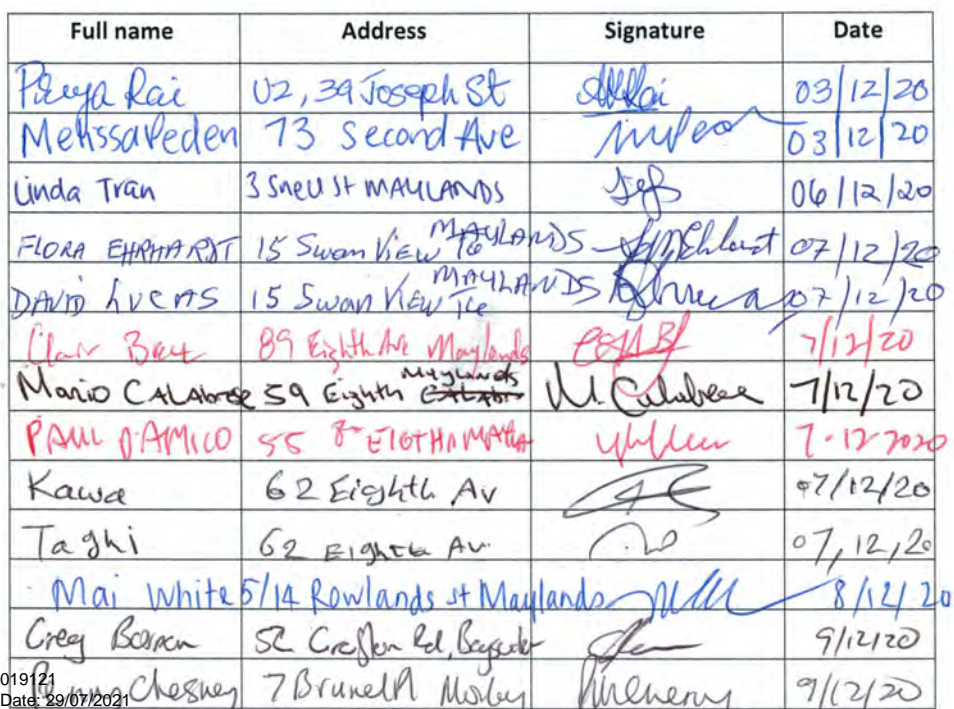 Full name Address Signature Date
Priya Rai U2, 39 Joseph St 03/12/20
Melissa Peden 73 Second Ave 03/12/20
Linda Tran 3 Snell St MAYLANDS 06/12/20
FLORA EHRHARDT 15 Swan View Tce MAYLANDS 07/12/20
DAVID LUCAS 15 Swan View Tce MAYLANDS 07/12/20
Clair 89 Eighth Ave Maylands 7/12/20
Mario CALABRESE 59 Eighth Maylands M. Calabrese 7/12/20
PAUL D'AMICO 55 7-12-2020
Kawa 62 Eighth Av 07/12/20
Taghi 62 Eighth Av. 07,12,20
Mai White 5/14 Rowlands st Maylands 8/12/20
Greg 52 Rd, 9/12/20
Chesney 7 Morley 9/12/20
019121
Date: 29/07/2021